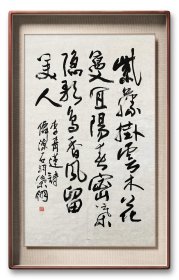 紫藤掛雲木花
蔓宜陽春密葉
隱歌鳥香風留
美人
李青蓮詩